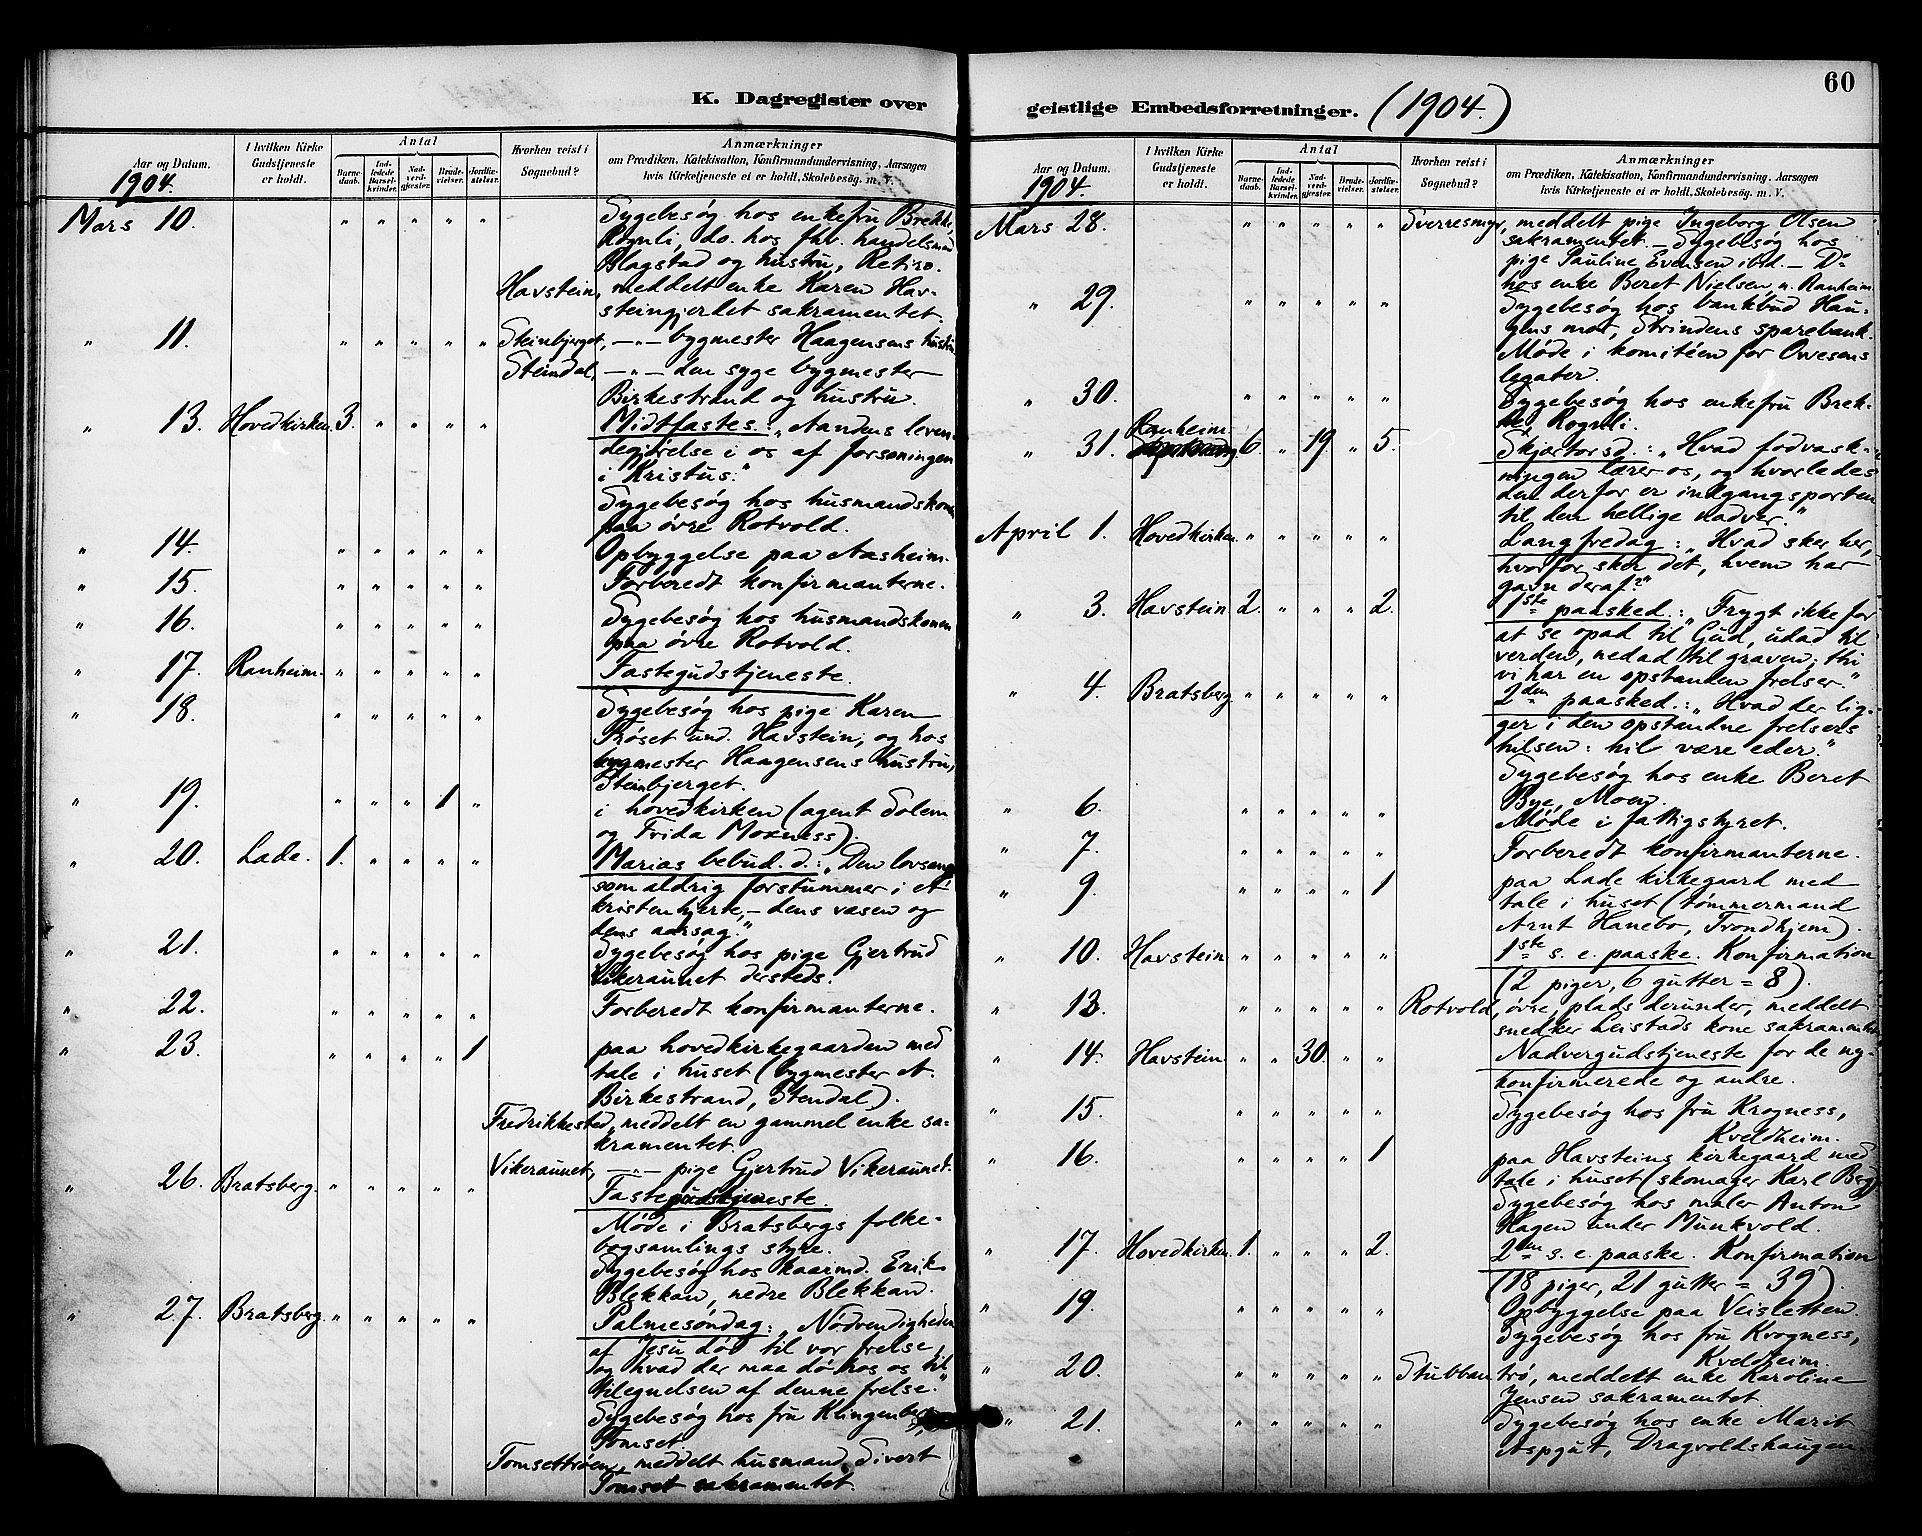 K. Dagregister over
Aar og Datum.
I hvilken Kirke Gudstjeneste er holdt.
Antal
Barnedaab.
Indledede Barselkvinder.
Nadverdgjester.
Brudevielser.
Jordfæstelser.
Hvorhen reist i Sognebud?
Anmærkninger
om Prædiken, Katekisation, Konfirmandundervisning, Aarsagen
hvis Kirketjeneste ei er holdt, Skolebesøg. m. v.
1904.
Mars 10. " " " " " Sygebesøg hos enkefru Brekke,
Rognli, do. hos fhv. handelsmand
Blagstad og hustru, Retiro.
Havstein, meddelt enke Karen Hav-
steingjerdet sakramentet.
" 11. " " " " " Steinbjerget, —"— bygmester Haagensens hustru
Steindal, —"— den syge bygmester
Birkestrand og hustru.
" 13. Hovedkirken 3. " " " " Midtfastes.: „Aandens leven-
degjörelse i os af forsoningen
i Kristus."
Sygebesøg hos husmandskonen
paa övre Rotvold.
" 14. " " " " " Opbyggelse paa Aasheim.
" 15. " " " " " Forberedt konfirmanterne.
" 16. " " " " " Sygebesøg hos husmandskonen
paa övre Rotvold.
" 17. Ranheim. " " " " " Fastegudstjeneste.
" 18. " " " " " Sygebesøg hos pige Karen
Röset und. Havstein, og hos
bygmester Haagensens hustru,
Steinbjerget.
" 19. " " " 1 " i hovedkirken (agent Solem
og Frida Moxness).
" 20. Lade. 1. " " " " Marias bebud. d.: „Den lovsang
som aldrig forstummer i et
kristenhjerte, – dens væsen og
dens aarsag."
" 21. " " " " " Sygebesøg hos pige Gjertrud
Vikeraunet dersteds.
" 22. " " " " " Forberedt konfirmanterne.
" 23. " " " " 1 paa hovedkirkegaarden med
tale i huset (bygmester A.
Birkestrand, Stendal).
Fredrikkested, meddelt en gammel enke sa-
kramentet.
Vikeraunet, —"— pige Gjertrud Vikeraunet.
" 26. Bratsberg. " " " " " Fastegudstjeneste.
Möde i Bratsbergs folke-
bogsamlings styre.
Sygebesøg hos kaarmd. Erik
Blekkan, nedre Blekkan.
" 27. Bratsberg. " " " " " Palmesöndag: „Nödvendigheden
af Jesu död til vor frelse,
og hvad der maa dö hos os til
tilegnelsen af denne frelse."
Sygebesøg hos fru Klingenberg,
Tomset.
Tomsettröen, meddelt husmand Sivert
Tomset sakramentet.
60
geistlige Embedsforretninger. (1904.)
Aar og Datum.
I hvilken Kirke Gudstjeneste er holdt.
Antal
Barnedaab.
Indledede Barselkvinder.
Nadverdgjester.
Brudevielser.
Jordfæstelser.
Hvorhen reist i Sognebud?
Anmærkninger
om Prædiken, Katekisation, Konfirmandundervisning, Aarsagen
hvis Kirketjeneste ei er holdt, Skolebesøg m. V.
1904.
Mars 28. " " " " " Sverresmyr, meddelt pige Ingeborg Olsen
sakramentet. – Sygebesøg hos
pige Pauline Evensen ibid. – Do
hos enke Beret Nielsen n. Ranheim.
" 29. " " " " " Sygebesøg hos bankbud Hau-
gens mor, Strindens sparebank
Möde i komitéen for Owesens
legater.
" 30. " " " " " Sygebesøg hos enkefru Brek-
ke, Rognli.
" 31. Ranheim. 6. " 19. " 5. Skjærtorsd.: „Hvad fodvask-
ningen lærer os, og hvorledes
den derfor er indgangsporten
til den hellige nadver."
April 1. Hovedkirken. " " " " " Langfredag: „Hvad sker her,
hvorfor sker det, hvem har
gavn deraf?"
" 3. Havstein 2. " " " 2. 1ste paasked.: „Frygt ikke for
at se opad til Gud, udad til
verden, nedad til graven; thi
vi har en opstanden frelser."
" 4. Bratsberg " " " " " 2den paasked.: „Hvad der lig-
ger i den opstandne frelsers
hilsen: hil være eder."
Sygebesøg hos enke Beret
Bye, Moen.
" 6. " " " " " Möde i fattigstyret.
" 7. " " " " " Forberedt konfirmanterne.
" 9. " " " " 1 paa Lade kirkegaard med
tale i huset (tömmermand
Arnt Hanebo, Trondhjem).
" 10. Havstein. " " " " " 1ste s. e. paaske. Konfirmation
(2 piger, 6 gutter = 8).
" 13. " " " " " Rotvold, övre, plads derunder, meddelt
snedker Leistads kone sakramentet.
" 14. Havstein. " " 30. " " Nadvergudstjeneste for de ny-
konfirmerede og andre.
" 15. " " " " " Sygebesøg hos fru Krogness,
Kveldheim.
" 16. " " " " 1 paa Havsteins kirkegaard med
tale i huset (skomager Karl Berg)
Sygebesøg hos maler Anton
Hagen under Munkvold.
" 17. Hovedkirken. 1. " " " 2. 2den s. e. paaske. Konfirmation
(18 piger, 21 gutter = 39).
" 19. " " " " " Opbyggelse paa Veisletten.
Sygebesøg hos fru Krogness,
Kveldheim.
" 20. " " " " " Stubban trö, meddelt enke Karoline
Jensen sakramentet.
" 21. " " " " " Sygebesøg hos enke Marit
Aspgut, Dragvoldshaugen.